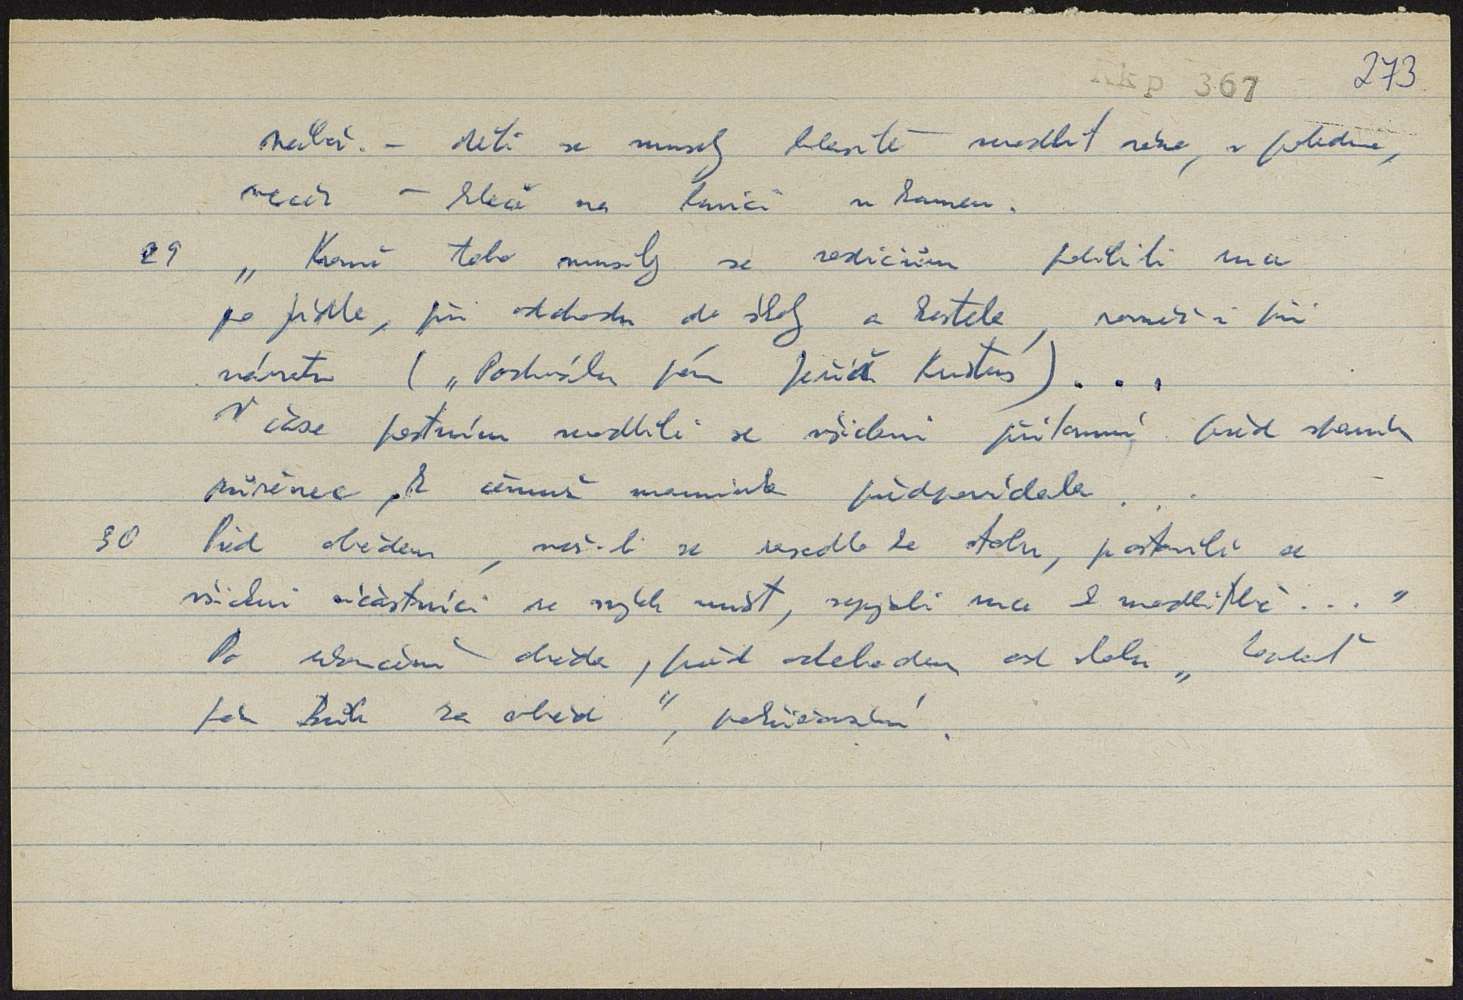 Kkp 367 273
děti se musely hlasitě modlit ráno, v poledne,
večer – klečí na lavici u kamen.
29 „Kromě toho musely se rodičům políbiti ruce
po jídle, při odchodu do školy a kostela, rovněž i při
návratu („Pochválen pán Ježíš Kristus) . . .
V čase postním modlili se všichni přítomní před spaním
růženec, k čemuž maminka předpovídala . . .
30 Před obědem, než-li se zasedlo ke stolu, postavili se
všichni účastníci na svých míst, sepjali ruce k modlitbě . . . "
Po skončení oběda, před odchodem od stolu „Zaplať
pán Bůh za oběd", pokřižování.